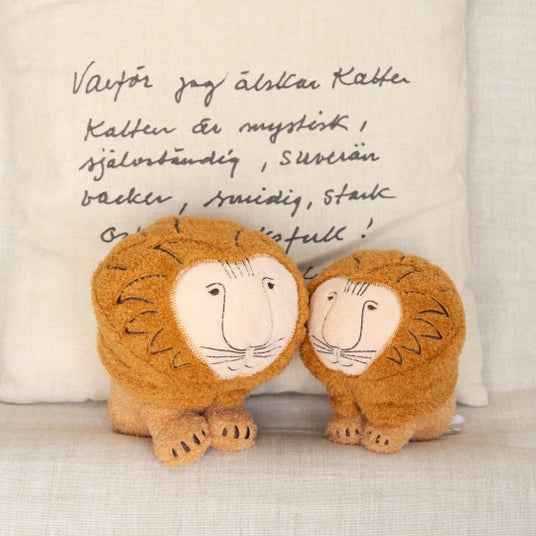 Varför jag älskar Katter
Katten är mystisk,
självständig, suverän
vacker, smidig, stark